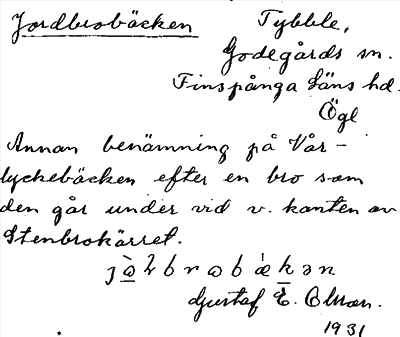 Jordbrobäcken
Tybble,
Godegårds sn.
Finspånga läns hd.
Ögl
Annan benämning på Vår-
lyckebäcken efter en bro som
den går under vid v. kanten av
Stenbrokärret.
Gustaf E. Olsson.
1931